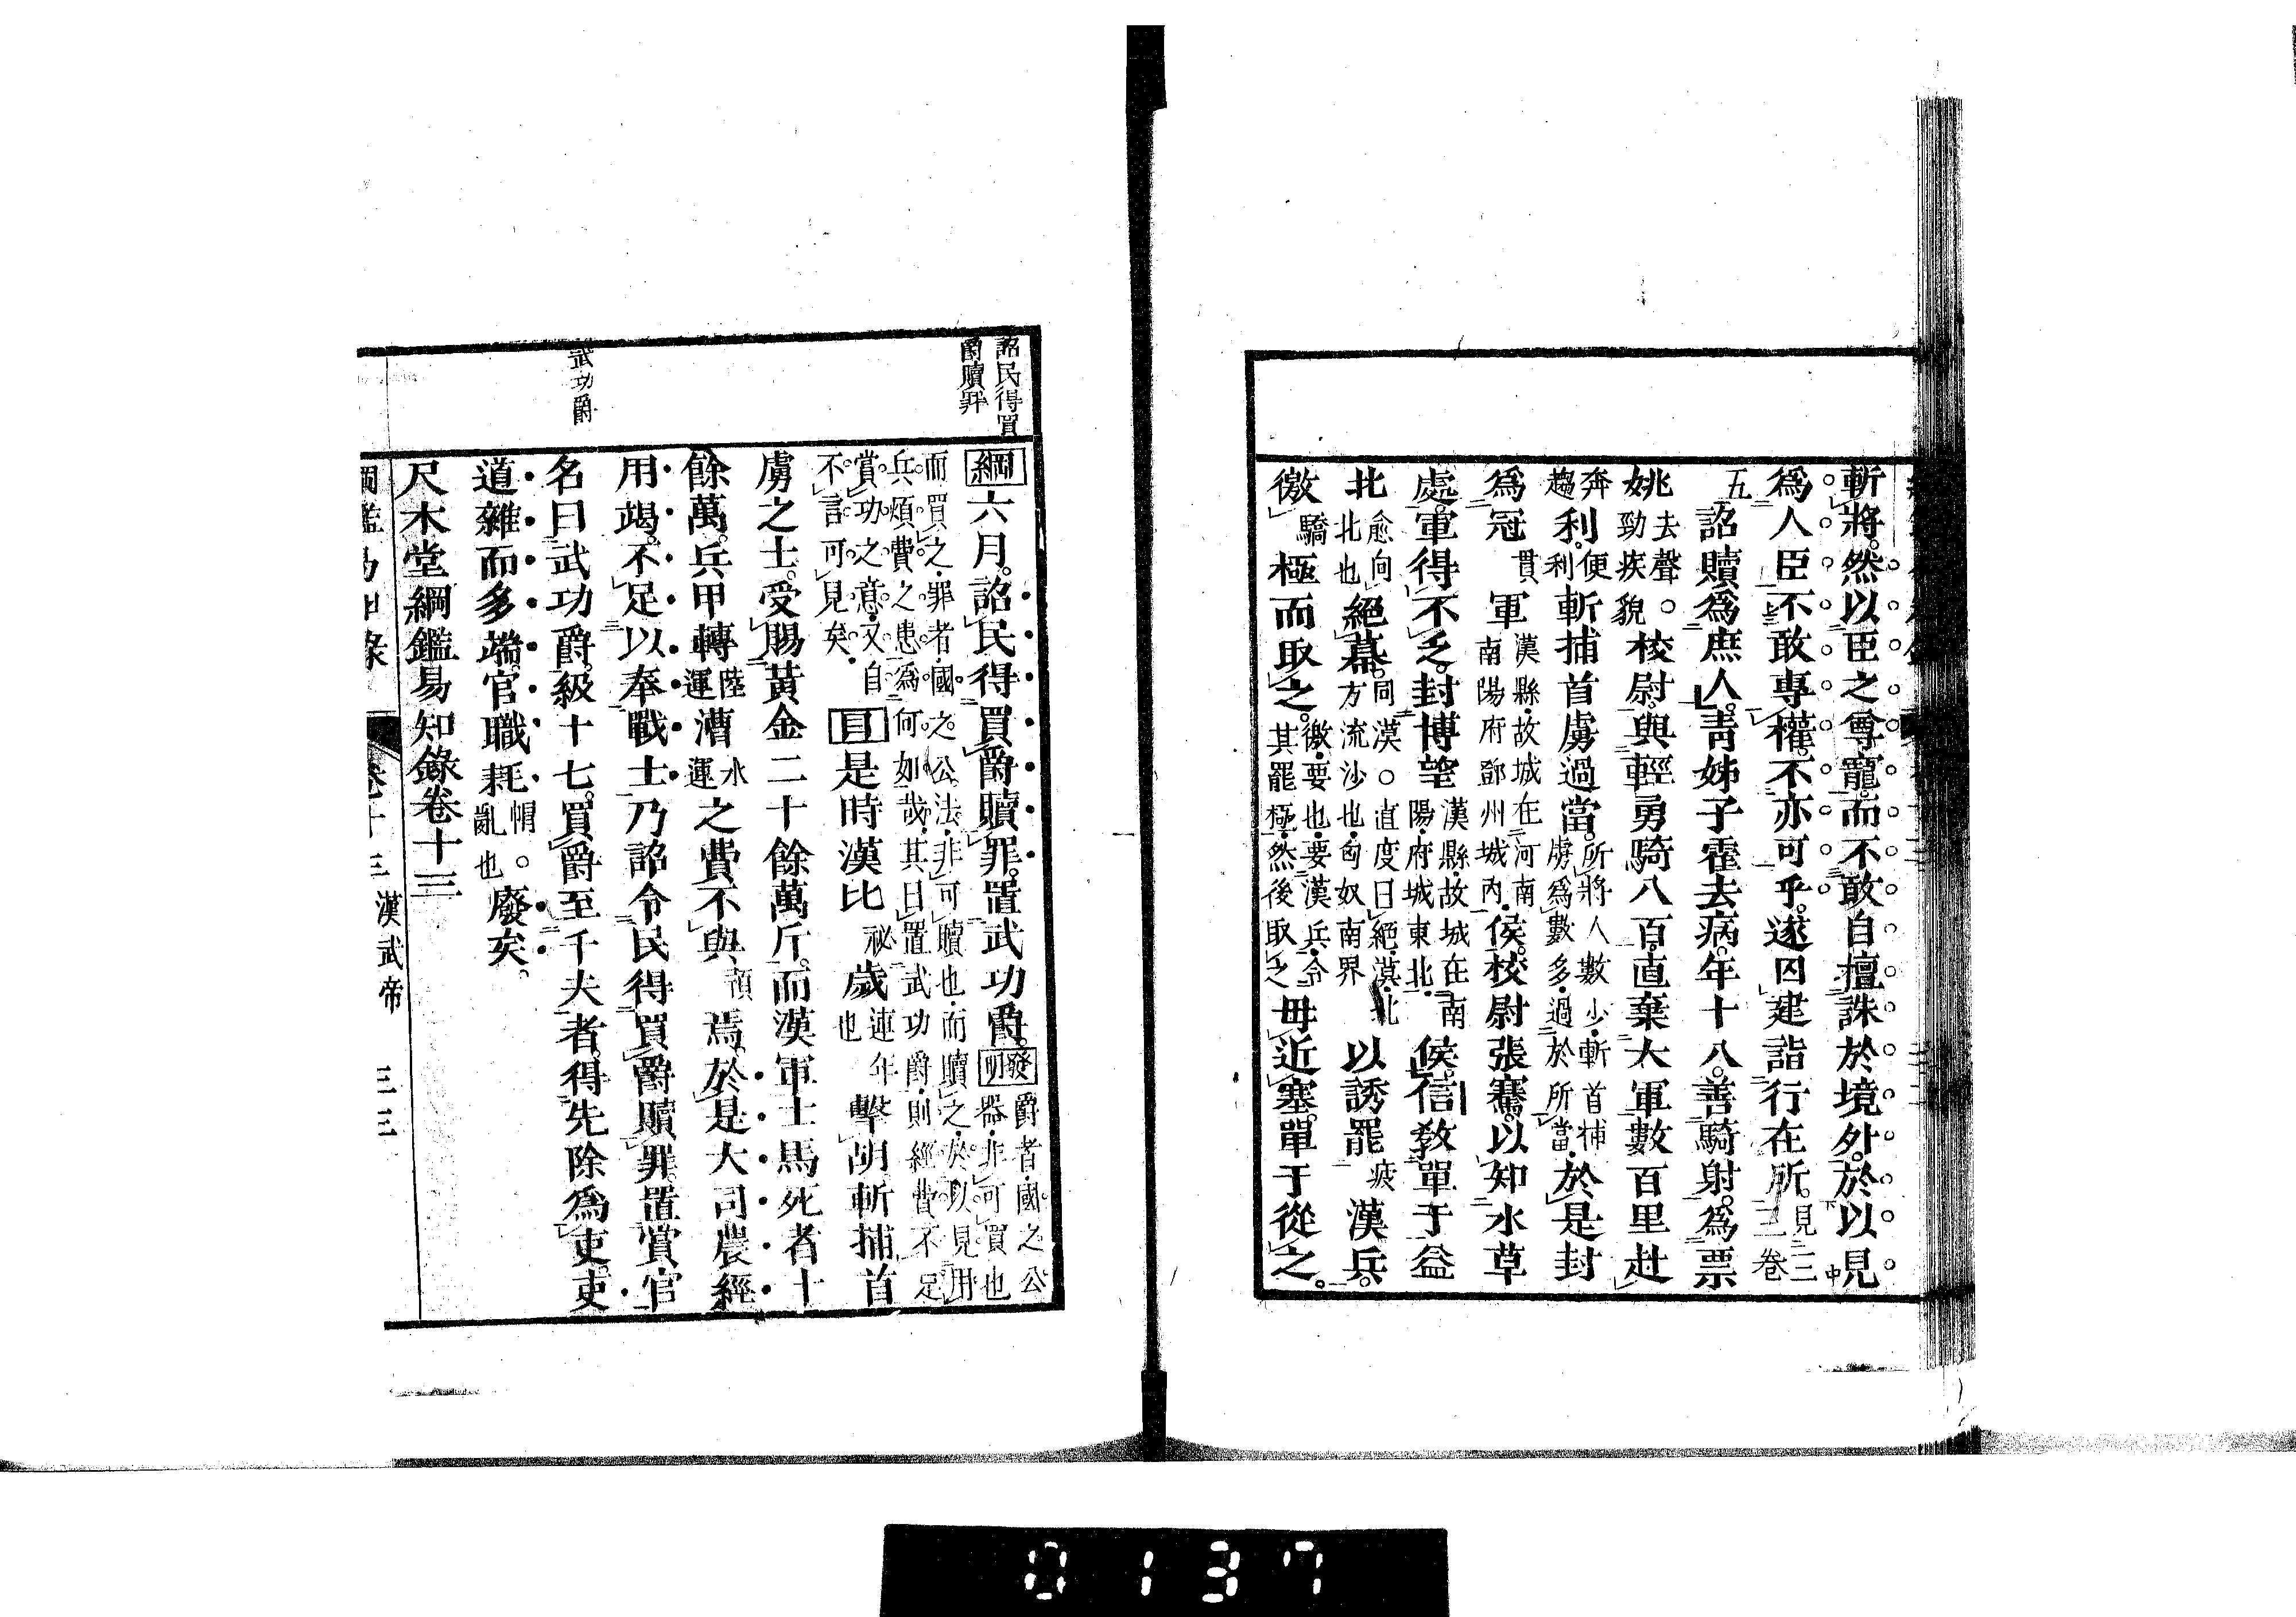 斬將。然以臣之尊寵。而不敢自擅誅於境外。於以見
爲人臣不敢專權。不亦可乎。遂囚建詣行在所。見二三卷
五詔贖爲庶人。靑姊子霍去病。年十八。善騎射。爲票
姚去聲。勁疾貌校尉。與輕勇騎八百。直棄大軍數百里赴
奔趨利。便利斬捕首虜過當。所將人數少、斬首捕虜爲數多、過於所當、於是封
爲冠貫軍漢縣、故城在河南南陽府鄧州城內、侯。校尉張騫。以知水草
處。軍得不乏。封博望漢縣、故城在南陽府城東北、侯。信敎單于益
北愈向北也絕幕。同漠。直度曰絕、漠、北方流沙也、匈奴南界以誘罷疲漢兵。
徼驕極而取之。徼、要也、要漢兵、令其罷極、然後取之毋近塞。單于從之。
詔民得買爵贖罪
綱六月。詔民得買爵贖罪。置武功爵。發明爵者、國之公器、非可買也
而買之、罪者、國之公法、非可贖也、而贖之、矣以見用兵煩費之患、爲何如哉、其曰置武功爵、則經費不足
賞功之意、又自不言可見矣、目是時漢比祕歲連年也擊胡斬捕首
虜之士。受賜黃金二十餘萬斤。而漢軍士馬死者十
餘萬。兵甲轉陸運漕水運之費不與預焉。於是大司農經
用竭。不足以奉戰士。乃詔令民得買爵贖罪。置賞官
武功爵
名曰武功爵。級十七。買爵至千夫者。得先除爲吏。吏
道雜而多端。官職耗帽。亂也廢矣。
尺木堂綱鑑易知錄卷十三
綱鑑易知錄 卷十三 漢武帝 三三
0137